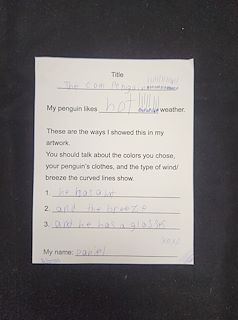 Title
The com Penguin
My penguin likes hot weather.
These are the ways I showed this in my
artwork.
You should talk about the colors you chose,
your penguin's clothes, and the type of wind/
breeze the curved lines show.
1. he has a
2. and the breeze
3. and he has a glasses
My name: Daniel